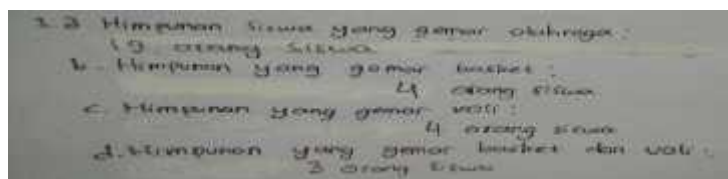 1. a Himpunan siswa yang gemar olahraga :
19 orang siswa
b. Himpunan yang gemar basket :
4 orang siswa
c. Himpunan yang gemar voli :
4 orang siswa
d. Himpunan yang gemar basket dan voli :
3 orang siswa